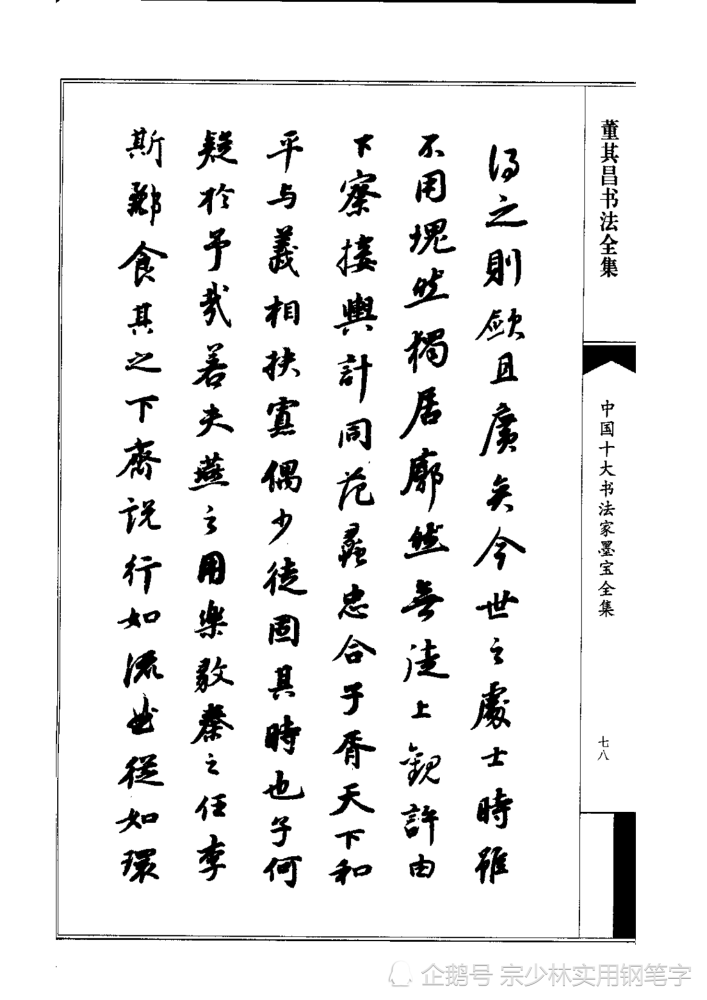 董其昌书法全集
中国十大书法家墨宝全集
七八
得之則敏且廣矣今世之處士時雖
不用塊然獨居廓然無徒上觀許由
下察接輿計同范蠡忠合子胥天下和
平与義相扶寡偶少徒固其時也子何
疑於予哉若夫燕之用樂毅秦之任李
斯酈食其之下齊説行如流曲從如環
企鹅号 宗少林实用钢笔字